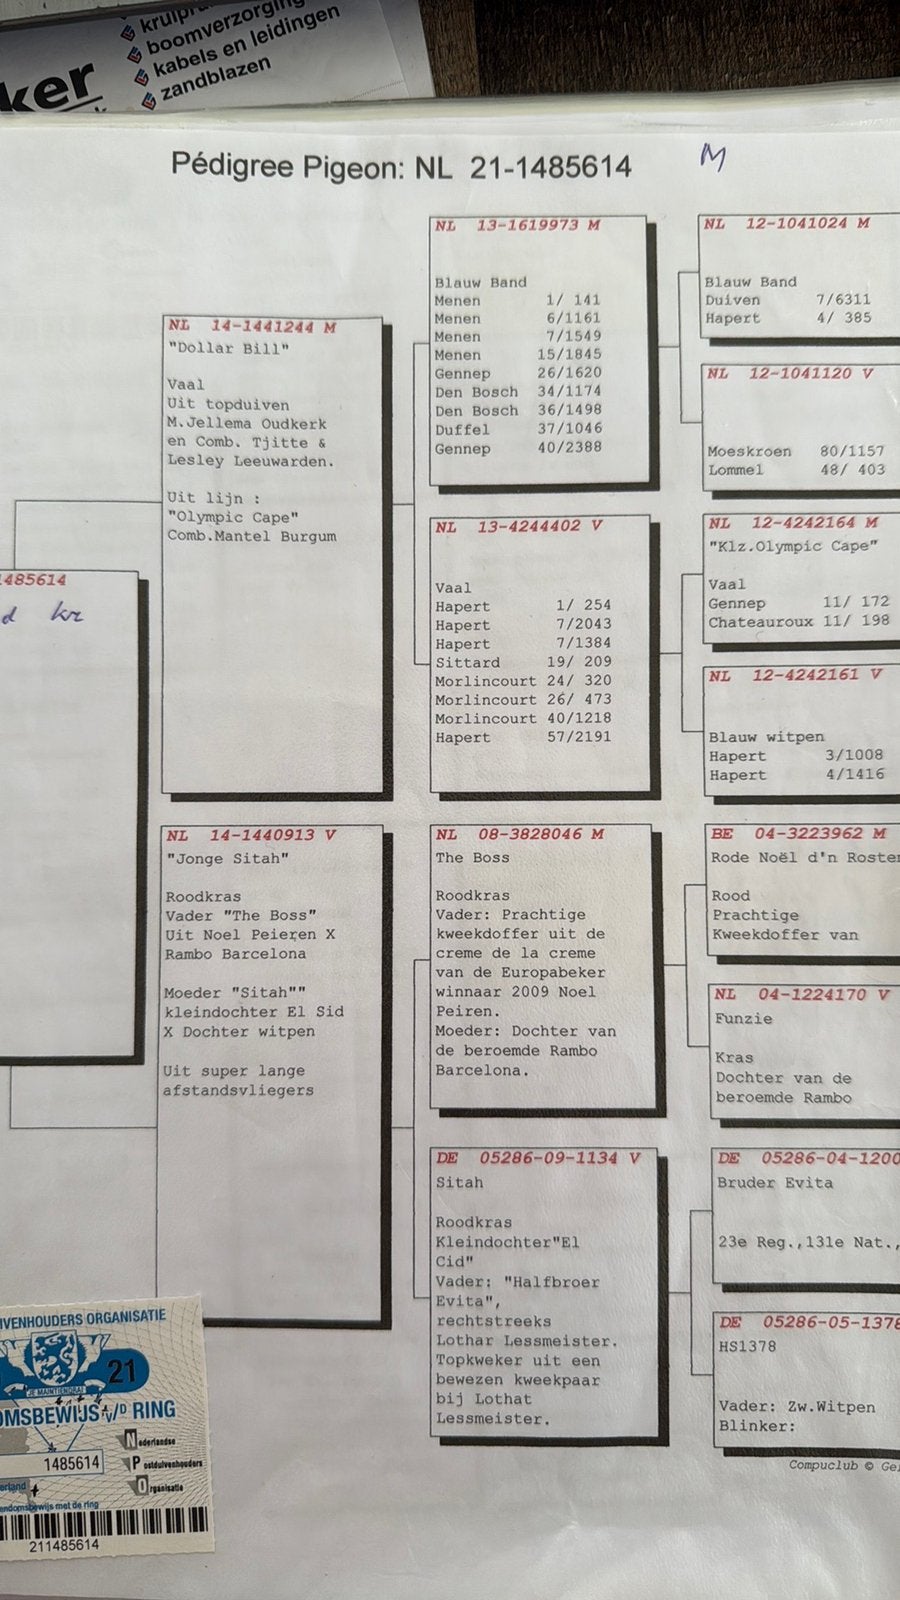 boomverzorging
kabels en leidingen
zandblazen
ker
Pédigree Pigeon: NL 21-1485614
M
1485614
d kr
NL 14-1441244 M
"Dollar Bill"
Vaal
Uit topduiven
M.Jellema Oudkerk
en Comb. Tjitte &
Lesley Leeuwarden.
Uit lijn :
"Olympic Cape"
Comb.Mantel Burgum
NL 14-1440913 V
"Jonge Sitah"
Roodkras
Vader "The Boss"
Uit Noel Peieren X
Rambo Barcelona
Moeder "Sitah""
kleindochter El Sid
X Dochter witpen
Uit super lange
afstandsvliegers
NL 13-1619973 M
Blauw Band
Menen 1/ 141
Menen 6/1161
Menen 7/1549
Menen 15/1845
Gennep 26/1620
Den Bosch 34/1174
Den Bosch 36/1498
Duffel 37/1046
Gennep 40/2388
NL 13-4244402 V
Vaal
Hapert 1/ 254
Hapert 7/2043
Hapert 7/1384
Sittard 19/ 209
Morlincourt 24/ 320
Morlincourt 26/ 473
Morlincourt 40/1218
Hapert 57/2191
NL 08-3828046 M
The Boss
Roodkras
Vader: Prachtige
kweekdoffer uit de
creme de la creme
van de Europabeker
winnaar 2009 Noel
Peiren.
Moeder: Dochter van
de beroemde Rambo
Barcelona.
DE 05286-09-1134 V
Sitah
Roodkras
Kleindochter"El
Cid"
Vader: "Halfbroer
Evita",
rechtstreeks
Lothar Lessmeister.
Topkweker uit een
bewezen kweekpaar
bij Lothat
Lessmeister.
NL 12-1041024 M
Blauw Band
Duiven 7/6311
Hapert 4/ 385
NL 12-1041120 V
Moeskroen 80/1157
Lommel 48/ 403
NL 12-4242164 M
"Klz.Olympic Cape"
Vaal
Gennep 11/ 172
Chateauroux 11/ 198
NL 12-4242161 V
Blauw witpen
Hapert 3/1008
Hapert 4/1416
BE 04-3223962 M
Rode Noël d'n Roster
Rood
Prachtige
Kweekdoffer van
NL 04-1224170 V
Funzie
Kras
Dochter van de
beroemde Rambo
DE 05286-04-1200
Bruder Evita
23e Reg.,131e Nat.,
DE 05286-05-1378
HS1378
Vader: Zw.Witpen
Blinker:
Compuclub © Ge
IVENHOUDERS ORGANISATIE
JE MAINTIENDRAI
21
OMSBEWIJS v/D RING
1485614
Nederlandse
Postduivenhouders
Organisatie
erland
endomsbewijs met de ring
211485614